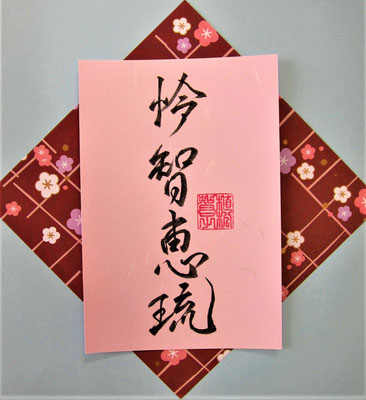 怜智恵琉